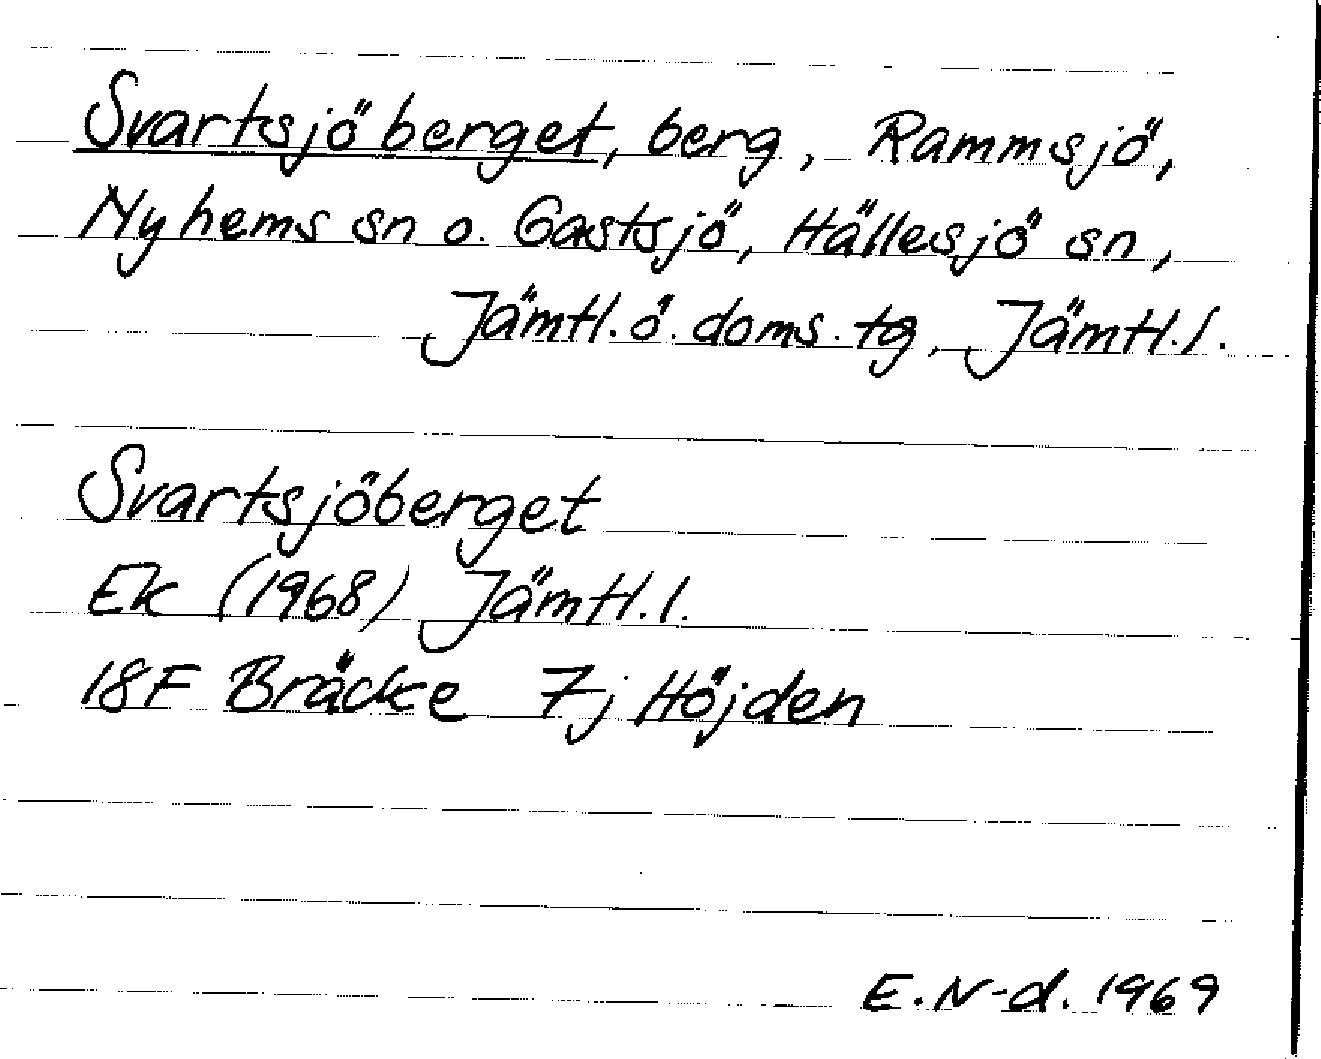 Svartsjöberget, berg, Rammsjö,
Nyhems sn o. Gastsjö, Hällesjö sn,
Jämtl. ö. doms. tg, Jämtl. l.
Svartsjöberget
Ek (1968) Jämtl. l.
18F Bräcke 7j Höjden
E. N-d. 1969